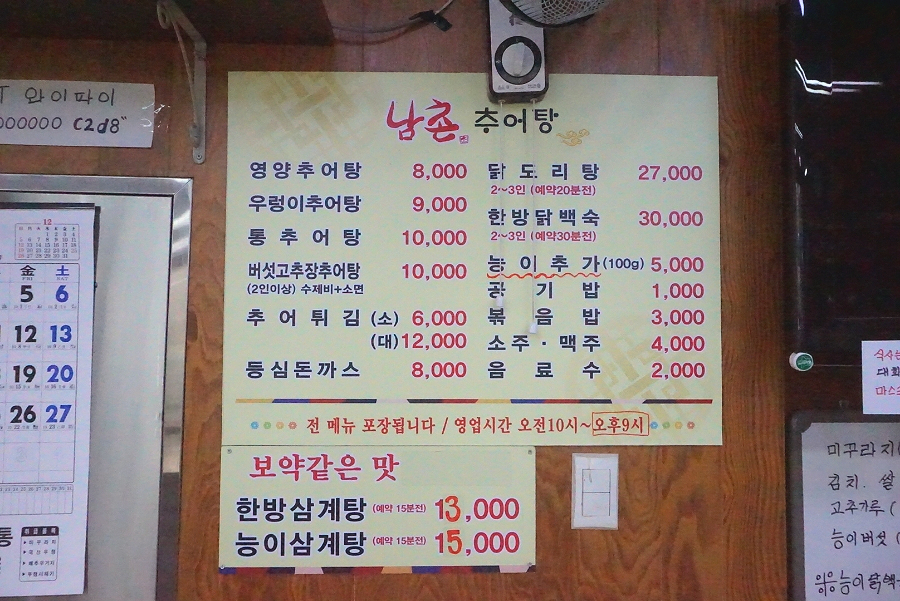 와이파이
000000 C2d8"
남촌 추어탕
영양추어탕 8,000
우렁이추어탕 9,000
통추어탕 10,000
버섯고추장추어탕 10,000
(2인이상) 수제비+소면
추어튀김 (소) 6,000
(대) 12,000
등심돈까스 8,000
닭도리탕 27,000
2~3인 (예약20분전)
한방닭백숙 30,000
2~3인 (예약30분전)
능이추가(100g) 5,000
공기밥 1,000
볶음밥 3,000
소주·맥주 4,000
음료수 2,000
전 메뉴 포장됩니다 / 영업시간 오전10시~오후9시
보약같은 맛
한방삼계탕 (예약 15분전) 13,000
능이삼계탕 (예약 15분전) 15,000
12
金 土
5 6
12 13
19 20
26 27
미꾸라지
김치. 쌀
고추가루 (
능이버섯 (